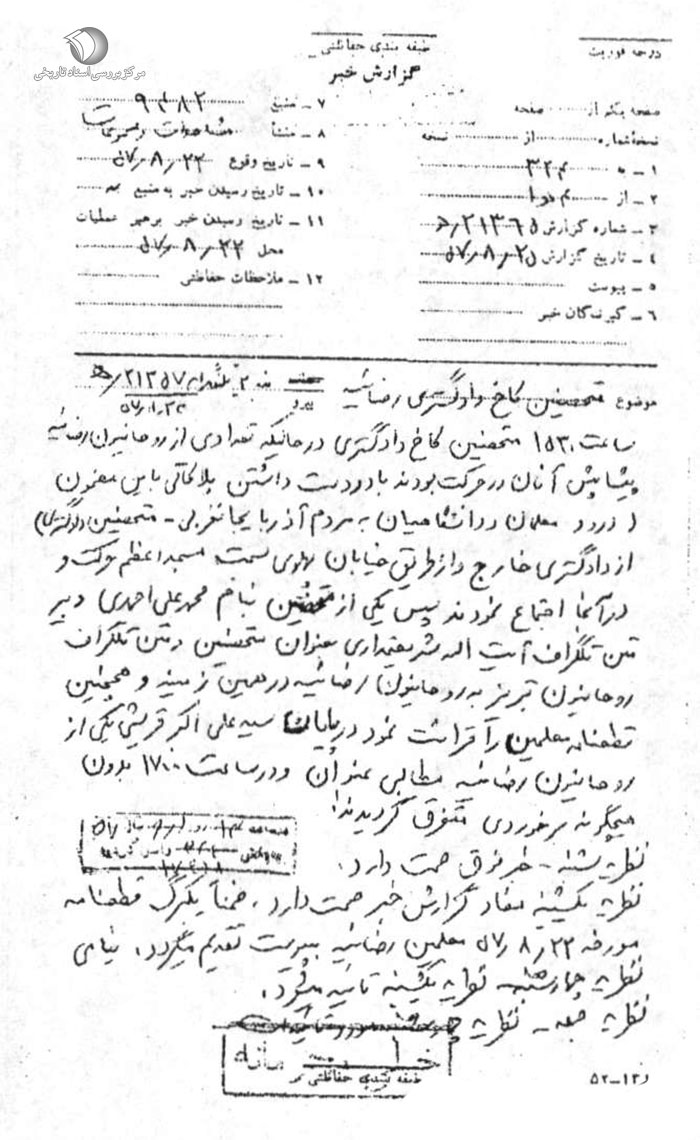 مرکز بررسی اسناد تاریخی
درجه فوریت
طبقه بندی حفاظتی
گزارش خبر
صفحه یکم از صفحه
نسخه شماره از نسخه
۱ ـ به ۳۲۴
۲ ـ از
۳ ـ شماره گزارش
۴ ـ تاریخ گزارش ۵۷٫۸٫۲۵
۵ ـ پیوست
۶ ـ گیرندگان خبر
۷ ـ منبع ۹۴۸۲
۸ ـ منشأ مشاهدات و مسموعات
۹ ـ تاریخ وقوع ۵۷٫۸٫۲۲
۱۰ ـ تاریخ رسیدن خبر به منبع
۱۱ ـ تاریخ رسیدن خبر برهبر عملیات
محل ۵۷٫۸٫۲۲
۱۲ ـ ملاحظات حفاظتی
موضوع متحصنین کاخ دادگستری رضائیه
ساعت ۱۵۳۰ متحصنین کاخ دادگستری درحالیکه تعدادی از روحانیون رضائیه
پیشاپیش آنان در حرکت بودند با در دست داشتن پلاکاتی باین مضمون
(درود معلمان و دانشگاهیان به مردم آذربایجانغربی ـ متحصنین دادگستری)
از دادگستری خارج و از طریق خیابان پهلوی بسمت مسجد اعظم حرکت و
در آنجا اجتماع نمودند سپس یکی از متحصنین بنام محمدعلی احمدی دبیر
متن تلگراف آیت اله شریعتمداری بعنوان متحصنین و متن تلگراف
روحانیون تبریز به روحانیون رضائیه در همین زمینه و همچنین
قطعنامه معلمین را قرائت نمود در پایان سید علی اکبر قریشی یکی از
روحانیون رضائیه مطالبی عنوان و در ساعت ۱۷۰۰ بدون
هیچگونه برخوردی متفرق گردیدند.
نظریه شنبه ـ خبر فوق صحت دارد.
نظریه یکشنبه مفاد گزارش خبر صحت دارد، ضمناً یکبرگ قطعنامه
مورخه ۵۷٫۸٫۲۲ معلمین رضائیه بپیوست تقدیم میگردد.
نظریه چهارشنبه ـ نظریه یکشنبه تائید میگردد.
نظریه جمعه ـ نظریه
طبقه بندی حفاظتی